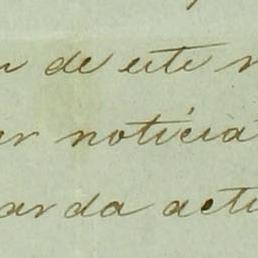 de este
noticia
arda act